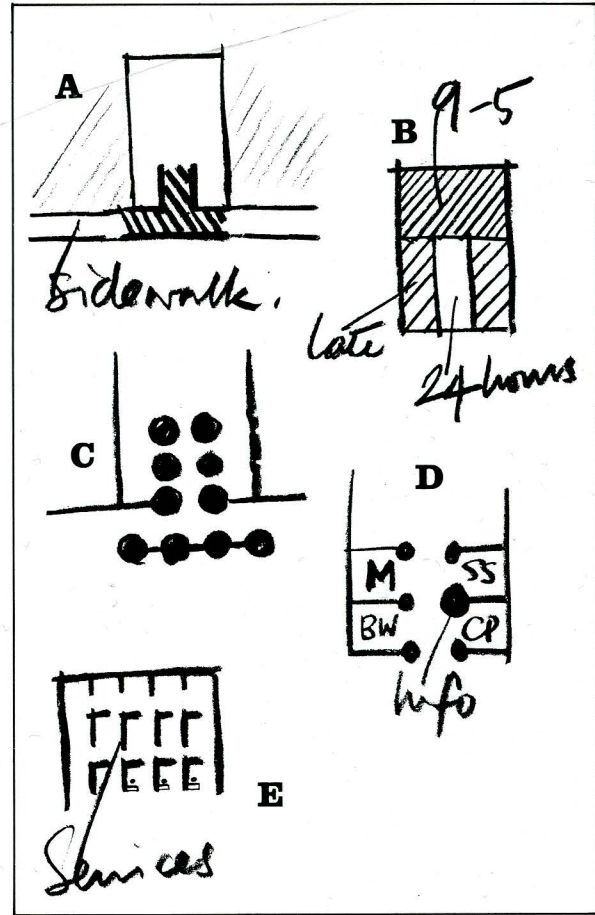 A
Sidewalk.
9-5
B
late
24 hours
C
D
M
SS
BW
CP
Info
E
Services